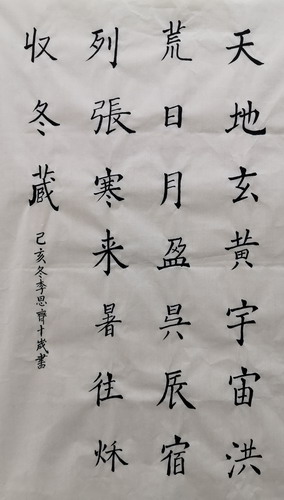 天地玄黄宇宙洪
荒日月盈昃辰宿
列張寒来暑往秌
收冬藏
己亥冬李思齊十歲書